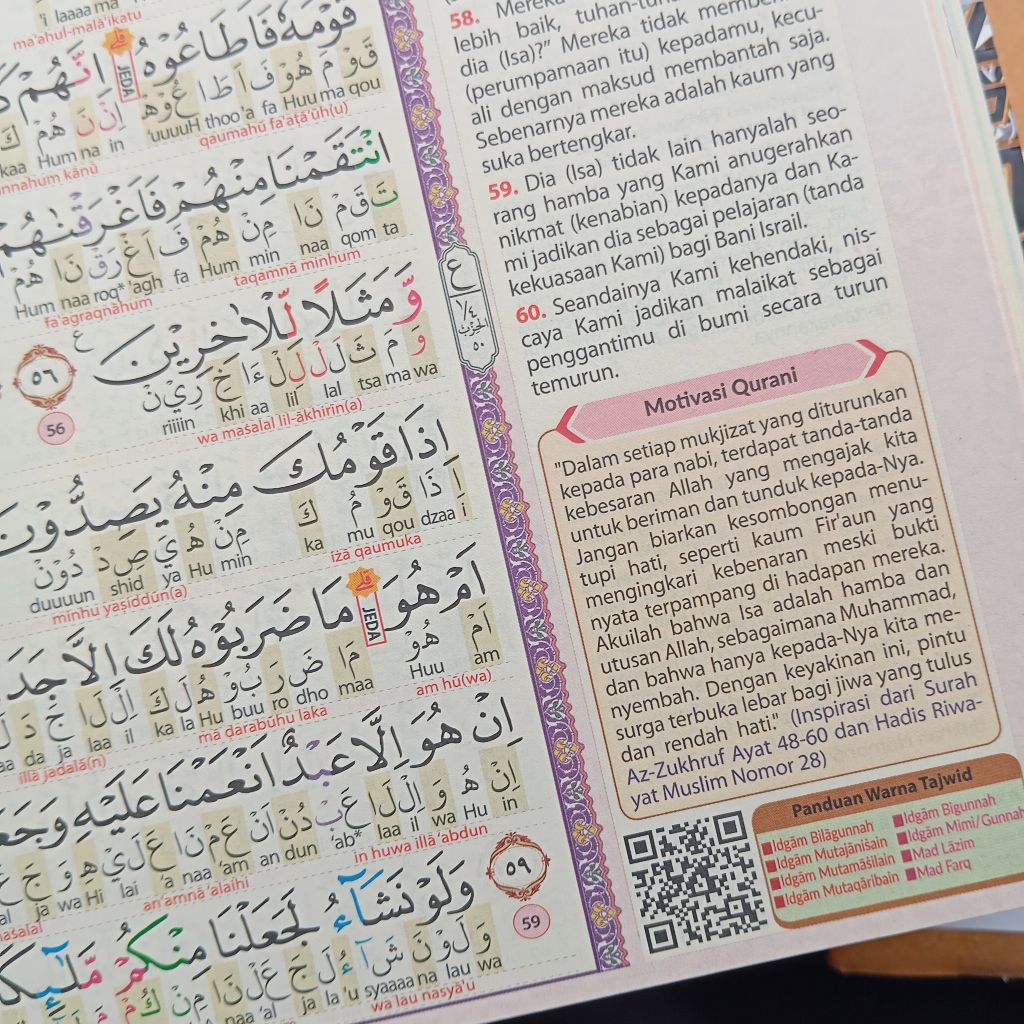 ma'ahul-malā'ikatu
قَوْمَهٗ فَاَطَاعُوْهُ ۗ اِنَّهُمْ
JEDA
kaa Hum na in 'uuuuH thoo 'a fa Huu ma qou
qaumahū fa'aṭā'ūh(u)
innahum kānū
انْتَقَمْنَا مِنْهُمْ فَاَغْرَقْنٰهُمْ
Hum naa roq* 'agh fa Hum min naa qom ta
taqamnā minhum
fa'agraqnāhum
وَّمَثَلًا لِّلْاٰخِرِيْنَ ࣖ ٥٦
riiiin khi aa lil lal tsa ma wa
wa maṡalal lil-ākhirīn(a)
56
اِذَا قَوْمُكَ مِنْهُ يَصِدُّوْنَ
duuuun shid ya Hu min ka mu qou dzaa i
iżā qaumuka
minhu yaṣiddūn(a)
اَمْ هُوَ ۗ مَا ضَرَبُوْهُ لَكَ اِلَّا جَدَ
JEDA
aa da ja laa il ka la Hu buu ro dho maa Huu am
am hū(wa)
mā ḍarabūhu laka
illā jadalā(n)
اِنْ هُوَ اِلَّا عَبْدٌ اَنْعَمْنَا عَلَيْهِ وَجَعَ
al ja wa Hi lai 'a naa 'am an dun 'ab* laa il wa Hu in
in huwa illā 'abdun
an'amnā 'alaihi
maṡalal
٥٩
59
وَلَوْ نَشَاۤءُ لَجَعَلْنَا مِنْكُمْ مَّلٰۤىِٕكَ
naa 'al ja la 'u syaaaa na lau wa
wa lau nasyā'u
ع
١/٤
الحزب
٥٠
58. Mereka
lebih baik, tuhan-tuh
dia (Isa)?" Mereka tidak member
(perumpamaan itu) kepadamu, kecu-
ali dengan maksud membantah saja.
Sebenarnya mereka adalah kaum yang
suka bertengkar.
59. Dia (Isa) tidak lain hanyalah seo-
rang hamba yang Kami anugerahkan
nikmat (kenabian) kepadanya dan Ka-
mi jadikan dia sebagai pelajaran (tanda
kekuasaan Kami) bagi Bani Israil.
60. Seandainya Kami kehendaki, nis-
caya Kami jadikan malaikat sebagai
penggantimu di bumi secara turun
temurun.
Motivasi Qurani
"Dalam setiap mukjizat yang diturunkan
kepada para nabi, terdapat tanda-tanda
kebesaran Allah yang mengajak kita
untuk beriman dan tunduk kepada-Nya.
Jangan biarkan kesombongan menu-
tupi hati, seperti kaum Fir'aun yang
mengingkari kebenaran meski bukti
nyata terpampang di hadapan mereka.
Akuilah bahwa Isa adalah hamba dan
utusan Allah, sebagaimana Muhammad,
dan bahwa hanya kepada-Nya kita me-
nyembah. Dengan keyakinan ini, pintu
surga terbuka lebar bagi jiwa yang tulus
dan rendah hati." (Inspirasi dari Surah
Az-Zukhruf Ayat 48-60 dan Hadis Riwa-
yat Muslim Nomor 28)
Panduan Warna Tajwid
Idgām Bilāgunnah
Idgām Mutajānisain
Idgām Mutamāṡilain
Idgām Mutaqāribain
Idgām Bigunnah
Idgām Mimi/Gunnah
Mad Lāzim
Mad Farq